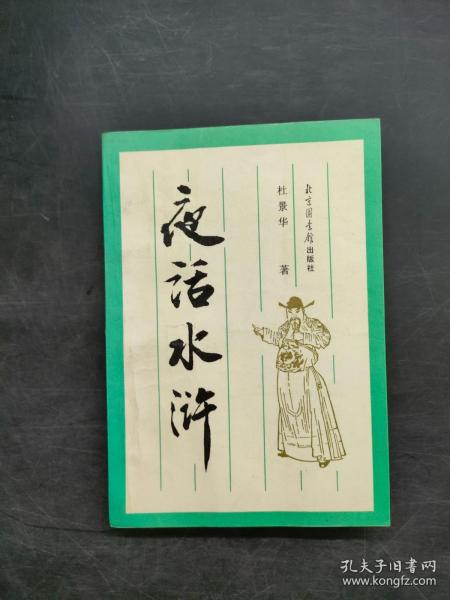 北京图书馆出版社
杜景华 著
夜话水浒
孔夫子旧书网
www.kongfz.com